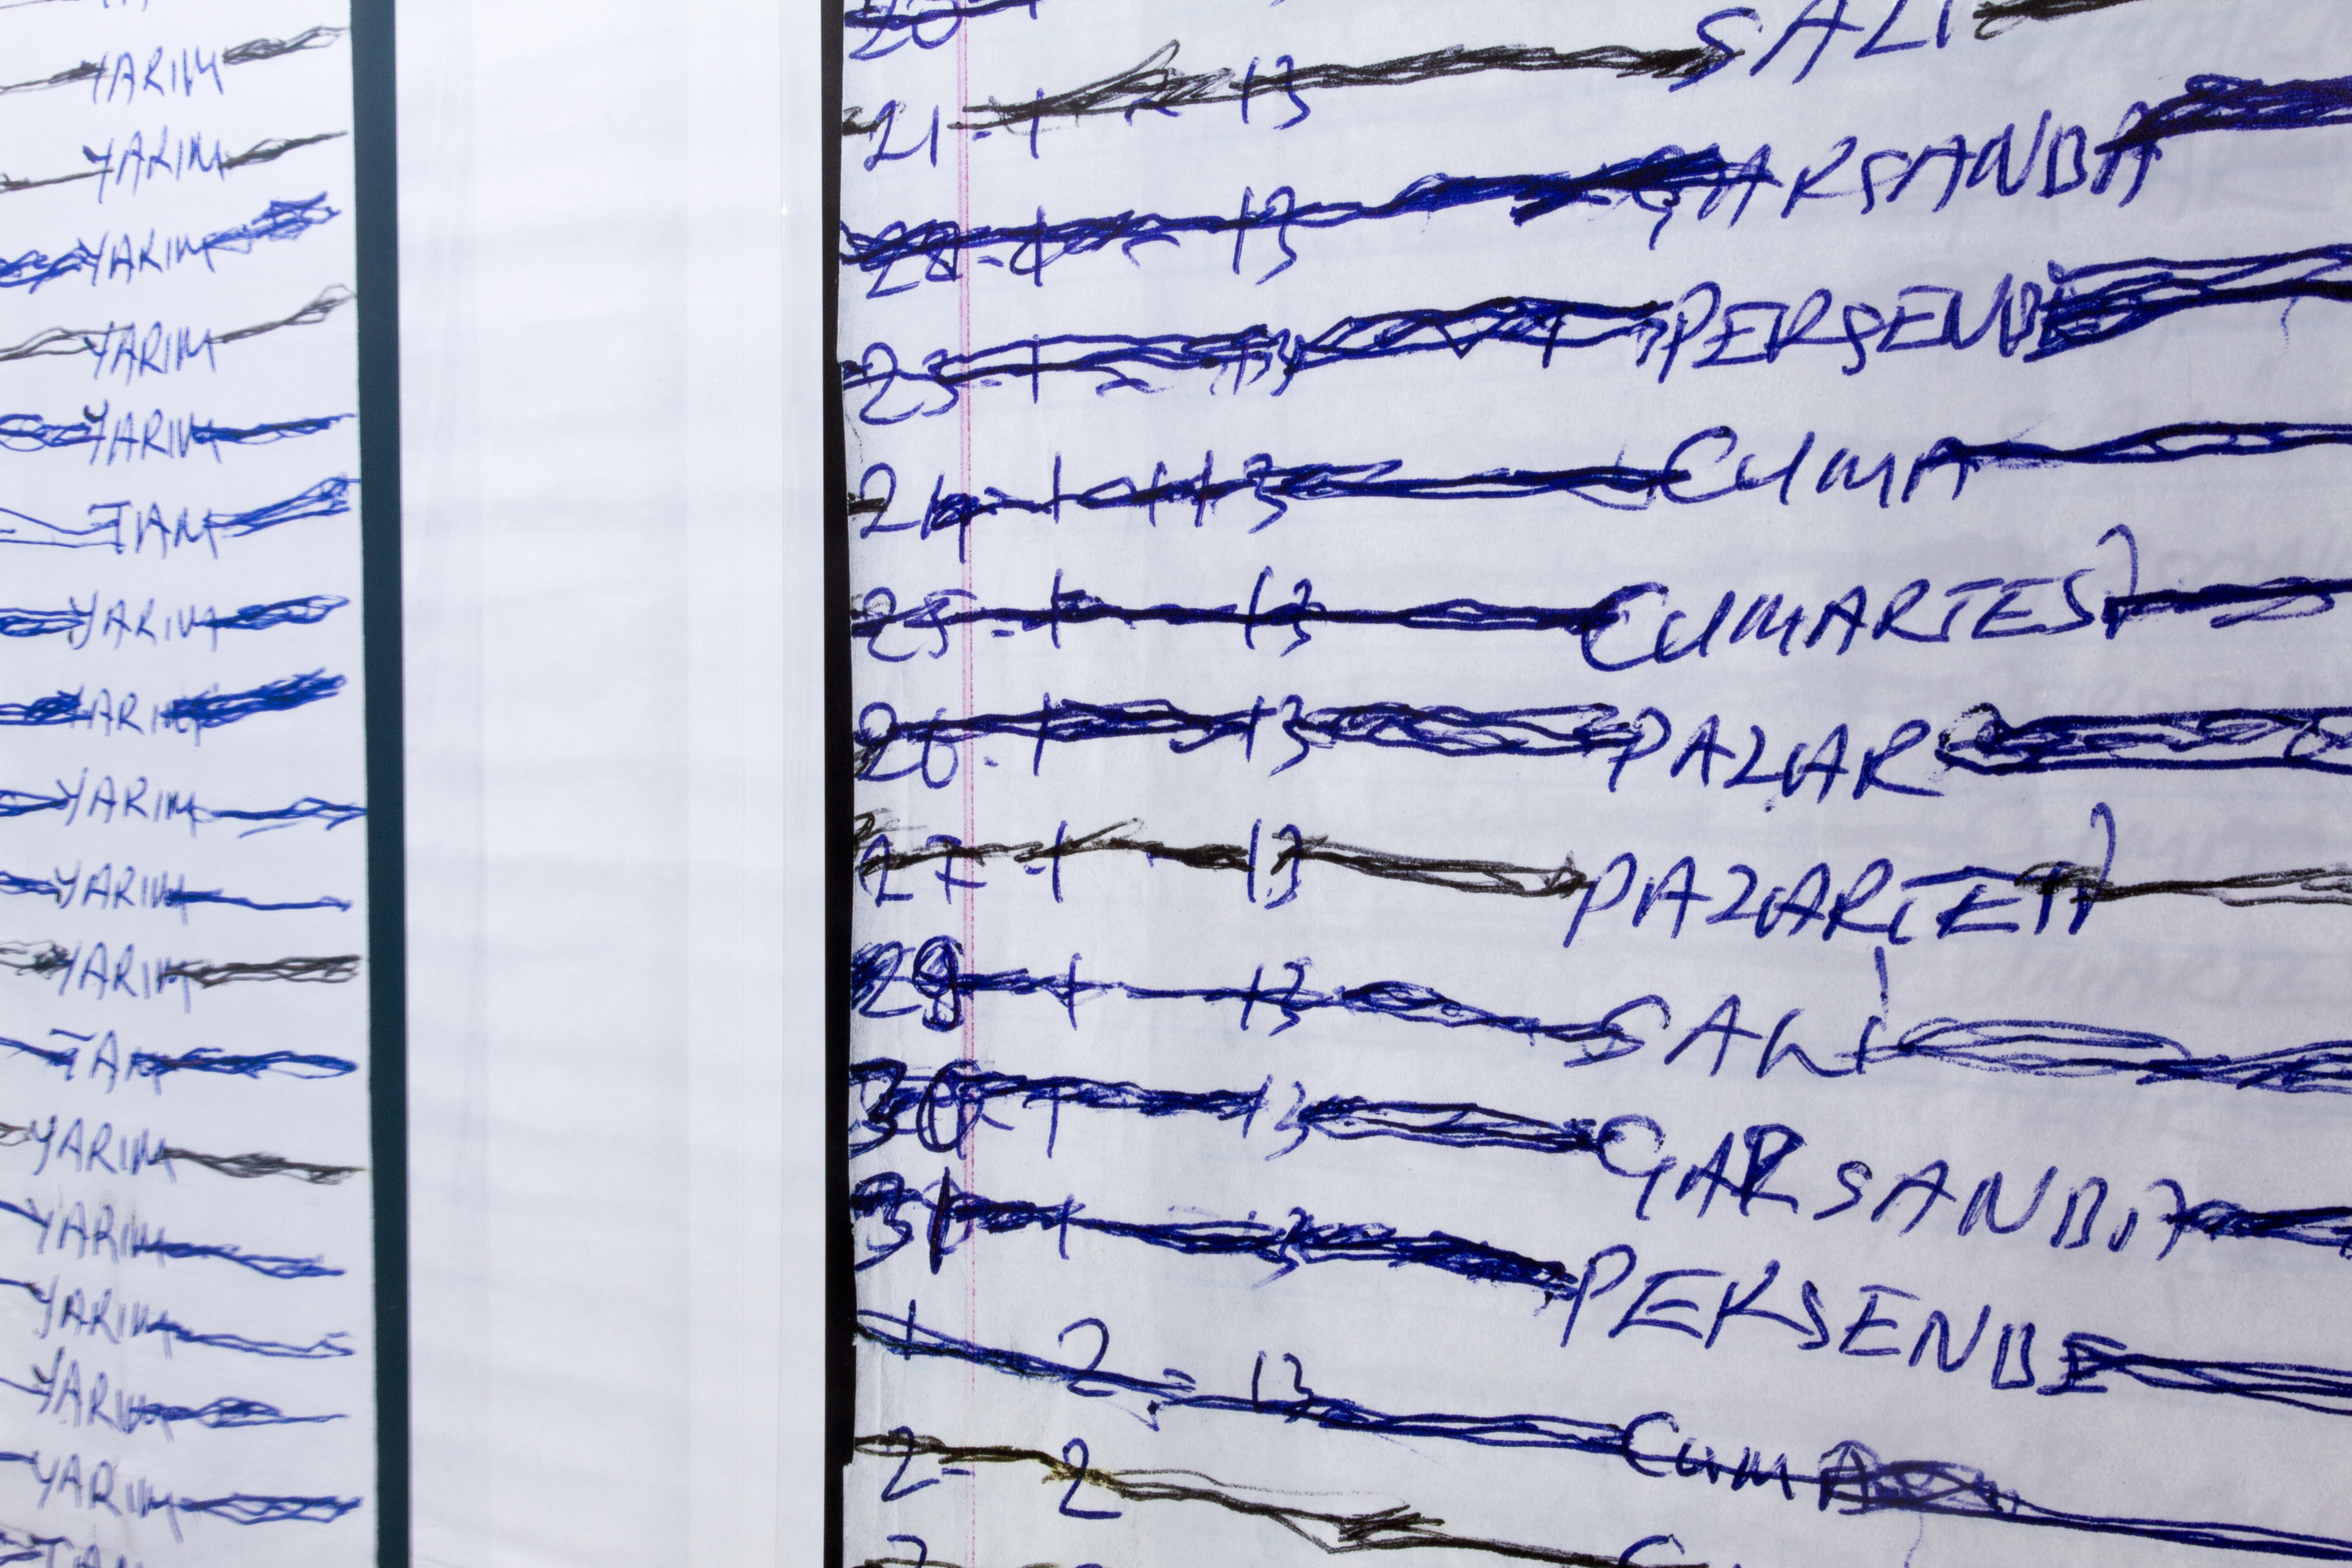 YARIM
YARIM
YARIM
YARIM
YARIM
TAM
YARIM
YARIM
YARIM
YARIM
YARIM
TAM
YARIM
YARIM
YARIM
YARIM
YARIM
20
21-1-13 SALI
22-1-13 ÇARSANBA
23-1-13 PERSENBE
24-1-13 CUMA
25-1-13 CUMARTESİ
26-1-13 PAZAR
27-1-13 PAZARTESİ
29-1-13 SALI
30-1-13 ÇARSANBA
31-1-13 PERSENBE
1-2-13 CUMA
2-2